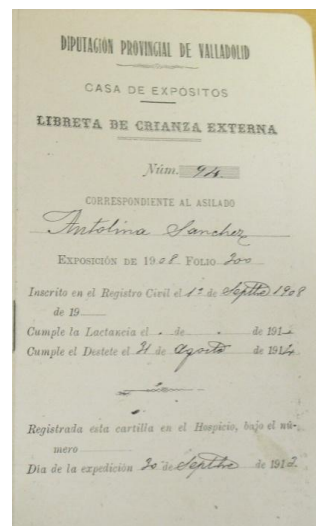 DIPUTACIÓN PROVINCIAL DE VALLADOLID
CASA DE EXPÓSITOS
LIBRETA DE CRIANZA EXTERNA
Núm. 94
CORRESPONDIENTE AL ASILADO
Antolina Sanchez
EXPOSICIÓN DE 1908 FOLIO 300
Inscrito en el Registro Civil el 1º de Septbe 1908
de 19
Cumple la Lactancia el . de . de 191
Cumple el Destete el 31 de agosto de 1914
Registrada esta cartilla en el Hospicio, bajo el nú-
mero
Dia de la expedición 30 de Septbre de 1912.